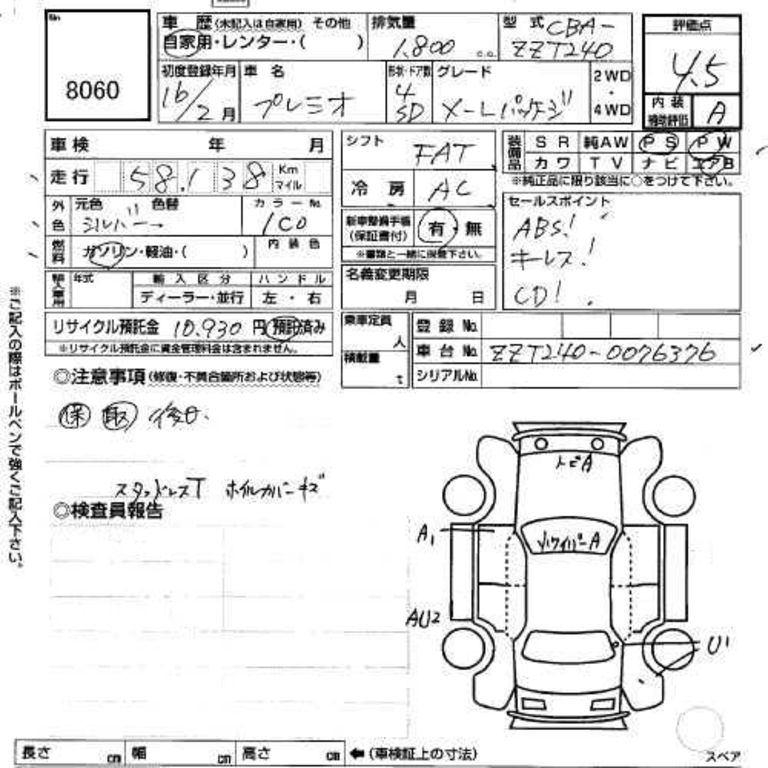 No.
8060
車歴(未記入は自家用) その他
自家用・レンター・( )
排気量
1,800 c.c.
型式 CBA-
ZZT240
評価点
4.5
内装
補助評価
A
初度登録年月
16/2月
車名
プレミオ
形状・ドア数
4
SD
グレード
X-Lパッケージ
2WD
・
4WD
車検 年 月
走行 58,138 Km
マイル
外色
元色 色替
シルバー→
カラーNo.
1C0
燃料
ガソリン・軽油・( )
内装色
輸入車用
年式
輸入区分
ディーラー・並行
ハンドル
左・右
シフト
FAT
冷房
AC
新車整備手帳
(保証書付)
有・無
※書類と一緒に保管下さい。
名義変更期限
月 日
装備品
SR 純AW PS PW
カワ TV ナビ エアB
※純正品に限り該当に○をつけて下さい。
セールスポイント
ABS!
キーレス!
CD!
リサイクル預託金 10,930 円 預託済み
※リサイクル預託金に資金管理料金は含まれません。
乗車定員
人
積載量
t
登録No.
車台No. ZZT240-0076376
シリアルNo.
◎注意事項(修復・不具合箇所および状態等)
保 取 後日.
スタッドレスT ホイルカバーキズ
◎検査員報告
※ご記入の際はボールペンで強くご記入下さい。
トビA
ワイパーA
A1
AU2
U1
スペア
長さ cm 幅 cm 高さ cm ←(車検証上の寸法)